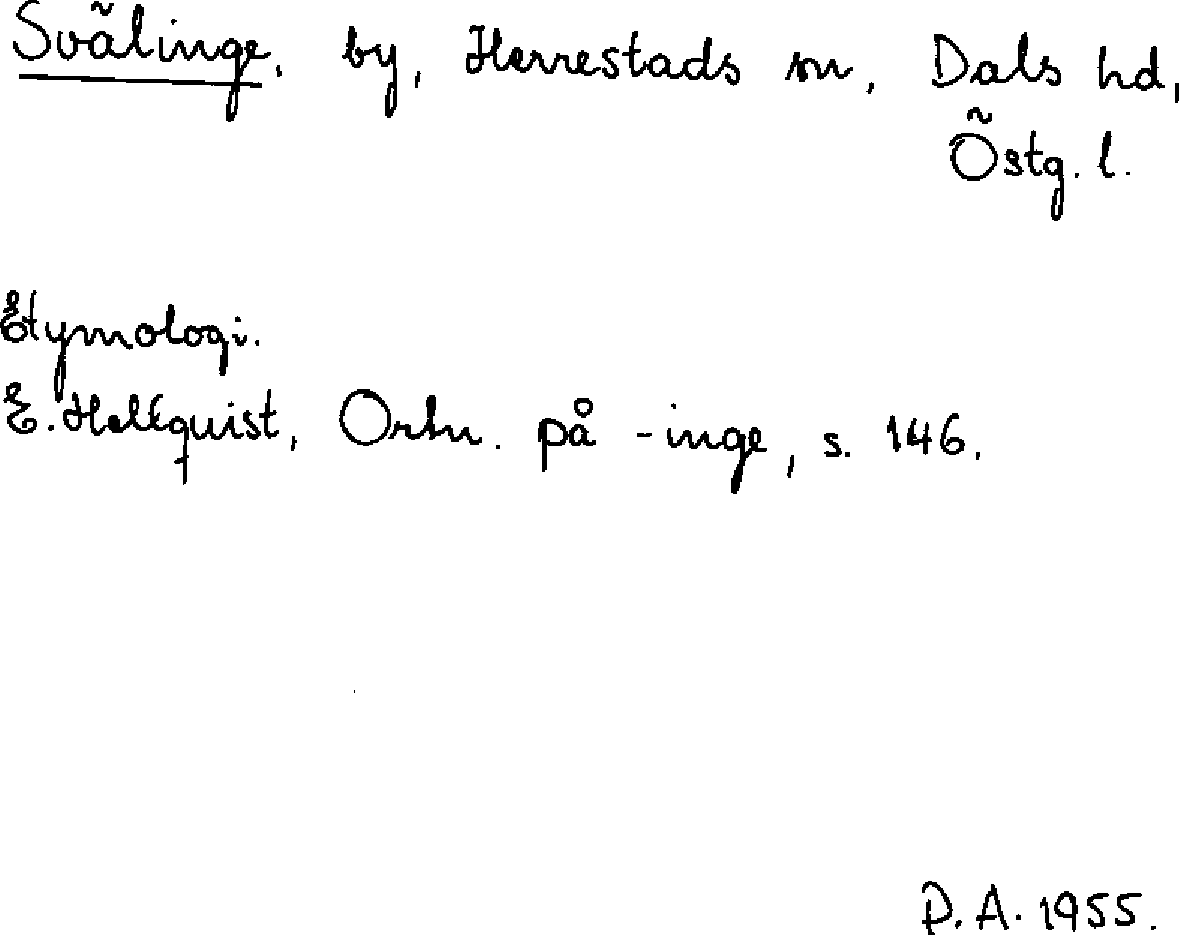 Svälinge, by, Herrestads sn, Dals hd,
Östg. l.
Etymologi.
E. Hellquist, Ortn. på -inge, s. 146.
D. A. 1955.